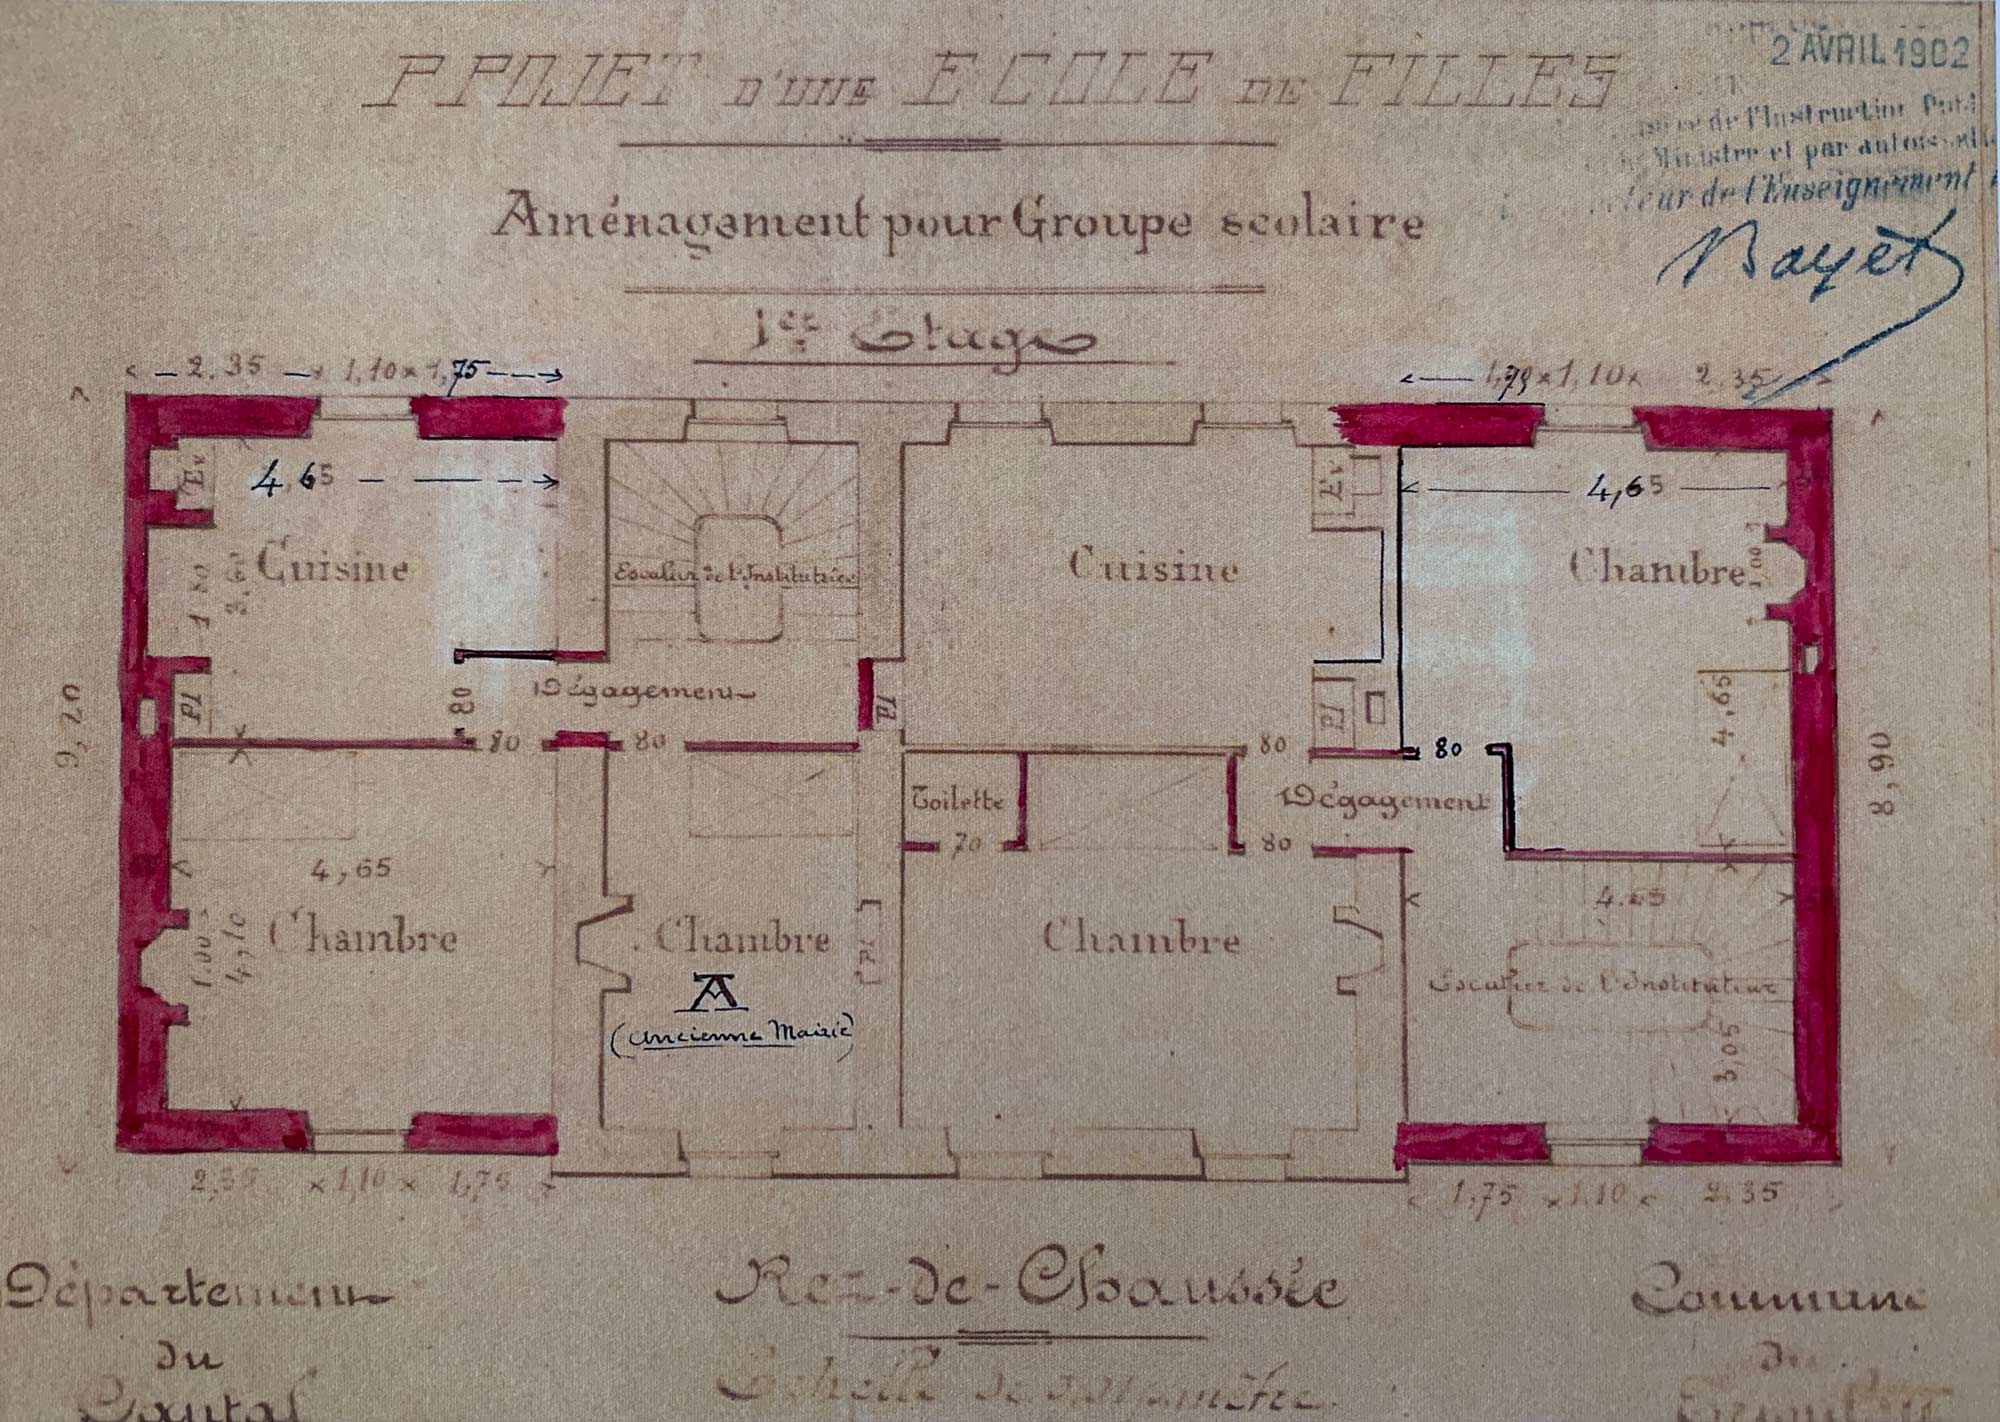 PROJET D'UNE ECOLE DE FILLES
2 AVRIL 1902
de l'Instruction
Ministre et par
de l'Enseignement
Bayet
Aménagement pour Groupe scolaire
1er Etage
2.35 1,10 1,75
1,79 1,10 2.35
Ev
4,65
Ev
4,65
Cuisine
Escalier de l'Institutrice
Cuisine
Chambre
1,00
1 80
3,60
9,20
Pl
80
Dégagement
Pl
4,65
8,90
80
80
80
80
Toilette
Dégagement
70
80
4,65
Chambre
1.00
4,10
Chambre
A
(ancienne Mairie)
Pl
Chambre
Escalier de l'Instituteur
3,05
2,35 1,10 1,75
1.75 1.10 2.35
Rez-de-Chaussée
Département
du
Cantal
Commune
de
Echelle de mètre